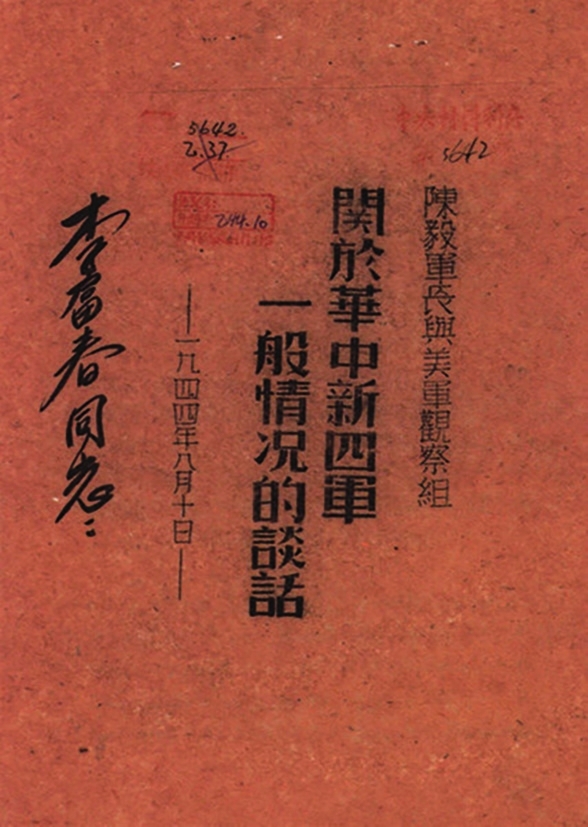 陳毅軍長與美軍觀察組
關於華中新四軍
一般情況的談話
——一九四四年八月十日——
李富春同志：
5642
5642.
2.37
244.10